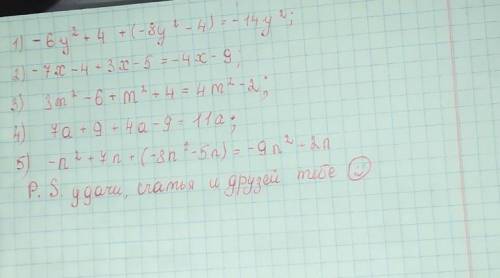 1) -6y² + 4 + (-8y² - 4) = -14y²;
2) -7x - 4 + 3x - 5 = -4x - 9;
3) 3m² - 6 + m² + 4 = 4m² - 2;
4) 7a + 9 + 4a - 9 = 11a;
5) -n² + 7n + (-8n² - 5n) = -9n² - 2n
P.S. удачи, счатья и друзей тибе ☺